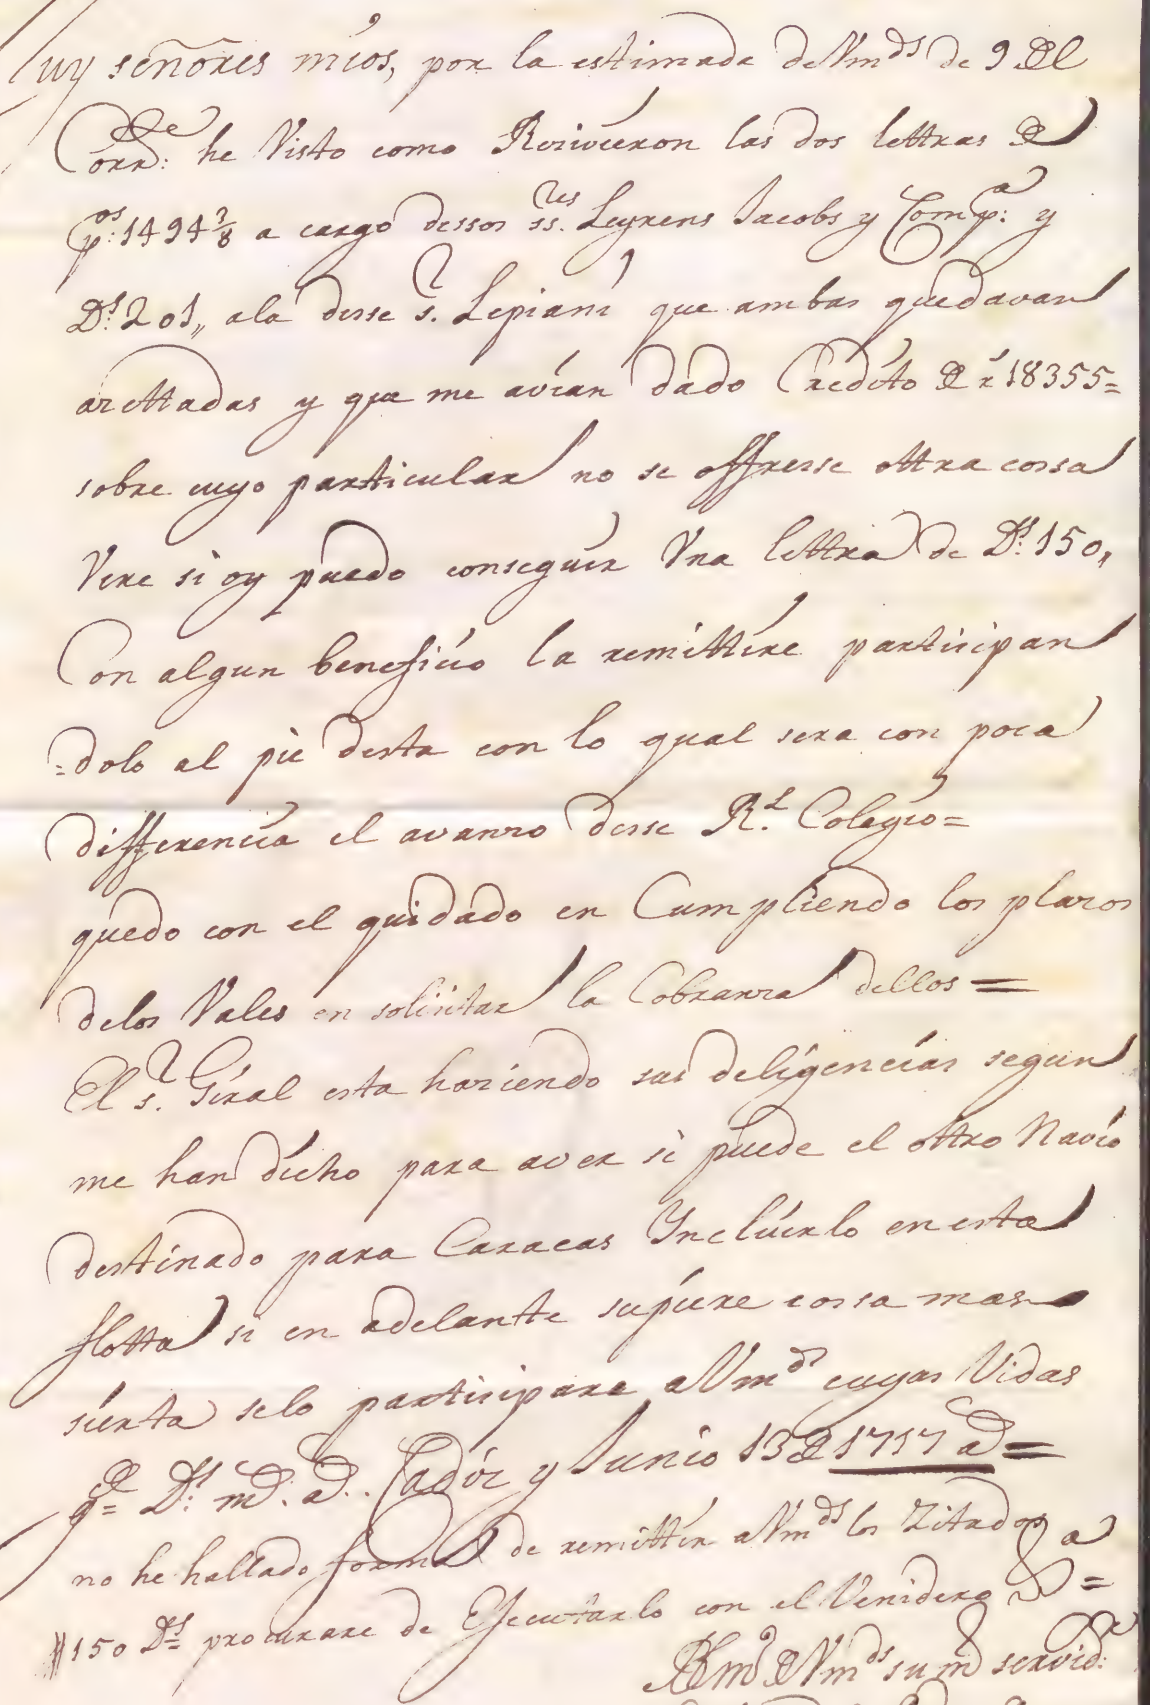 Muy señores mios, por la estimada de Vmds de 9 del
Corrte: he Visto como Rezivieron las dos lettras de
ps: 1494 3/8 a cargo dessos ssres. Leyrens Jacobs y Compa: y
Ds: 201,, ala desse sr. Lepiani que ambas quedavan
azettadas y que me avian dado Credito de rs 18355=
sobre cuyo particular no se offresse ottra cossa
Vere si oy puedo conseguir Vna lettra de Ds: 150,,
Con algun benefizio la remittire partizipan
=dolo al pie desta con lo qual sera con poca
differencia el avanzo desse Rl. Colegio=
quedo con el quidado en Cumpliendo los plazos
delos Vales en solizitar la Cobranza dellos=
El sr. Giral esta haziendo sus deligencias segun
me han dicho para aver si puede el ottro Navio
destinado para Caracas Incluirlo en esta
flotta si en adelante supiere cossa mas
zierta selo partizipare a Vmds cuyas Vidas
gde= Ds: ms. as. Cadiz y Junio 13 de 1717 as=
no he hallado forma de remittir a Vmds los Zitados
150 Ds= procurare de Executarlo con el Venidero =
BLm de Vmds su mr servidr: